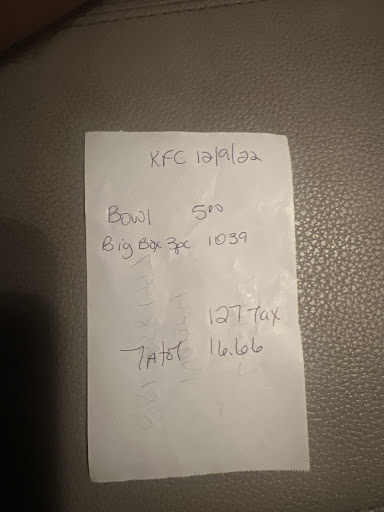 KFC 12/9/22
Bowl 5⁰⁰
Big Box 3pc 1039
127 Tax
Tatol 16.66